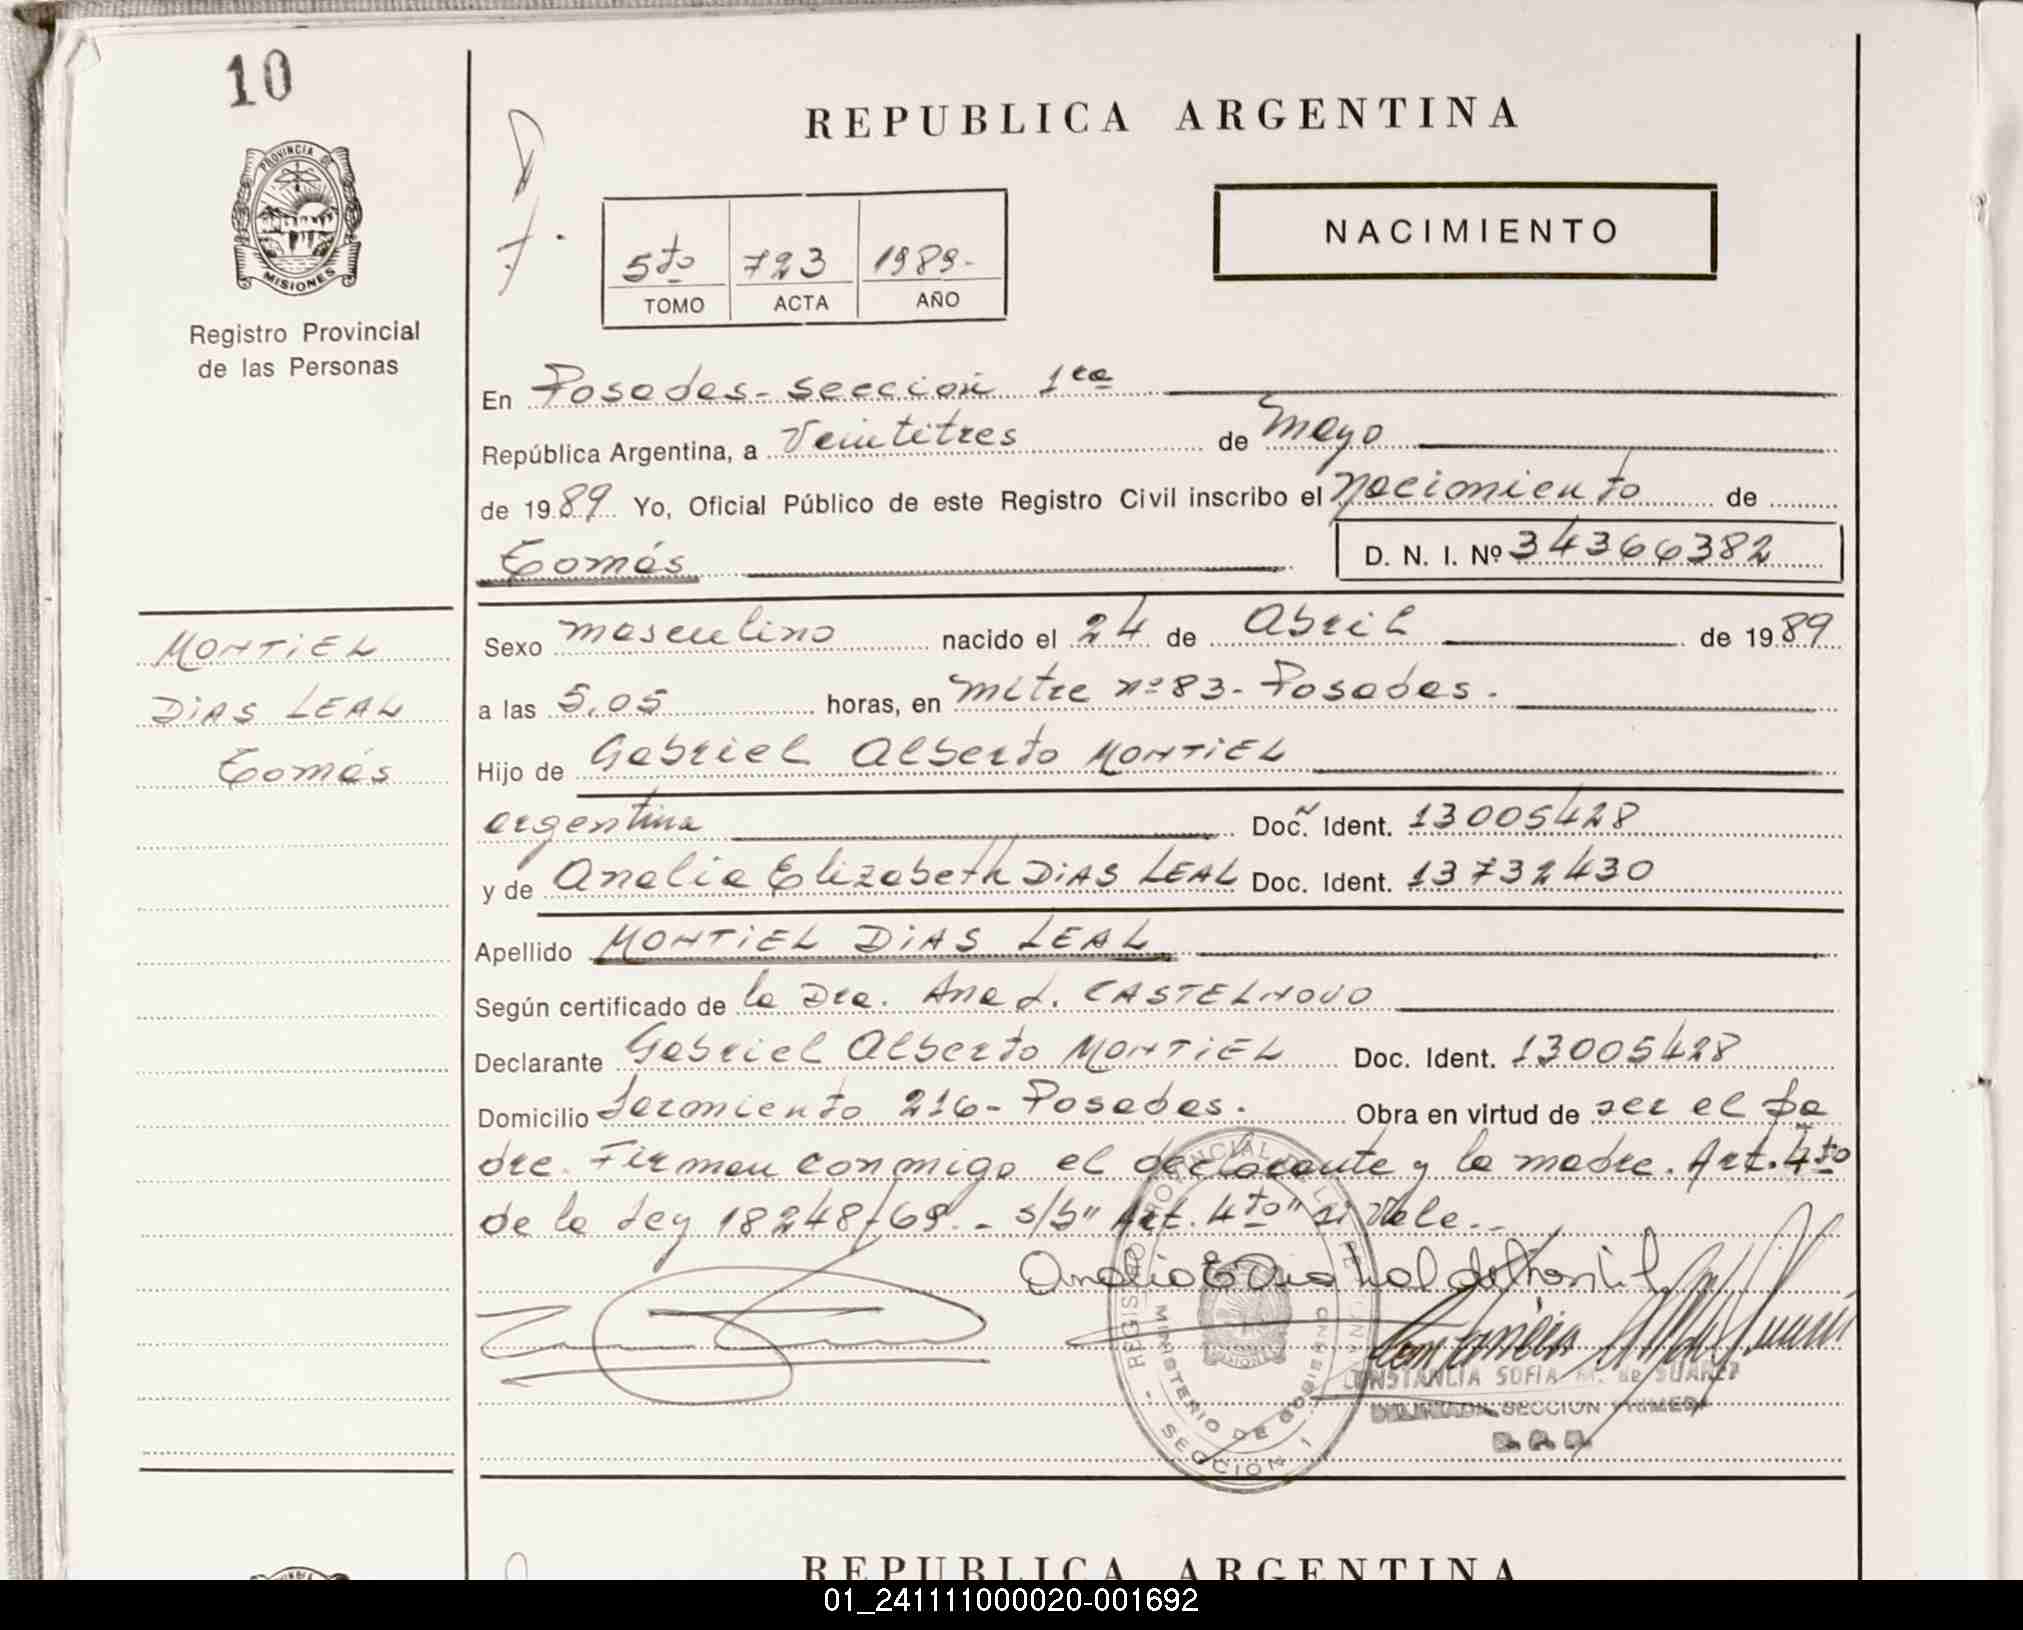 10
PROVINCIA DE
MISIONES
Registro Provincial
de las Personas
MONTIEL
DIAS LEAL
Tomás
REPUBLICA ARGENTINA
NACIMIENTO
5to 723 1989-
TOMO ACTA AÑO
En Posadas - sección 1ra
República Argentina, a Veintitres de Mayo
de 1989 Yo, Oficial Público de este Registro Civil inscribo el nacimiento de
Tomás D. N. I. Nº 34366382
Sexo masculino nacido el 24 de Abril de 1989
a las 5,05 horas, en Mitre nº 83 - Posadas.
Hijo de Gabriel Alberto MONTIEL
argentina Doc. Ident. 13005428
y de Analia Elizabeth DIAS LEAL Doc. Ident. 13732430
Apellido MONTIEL DIAS LEAL
Según certificado de la Dra. Ana L. CASTELNOVO
Declarante Gabriel Alberto MONTIEL Doc. Ident. 13005428
Domicilio Sarmiento 216 - Posadas. Obra en virtud de ser el pa
dre. Firman conmigo el declarante y la madre. Art. 4to
de la Ley 18248/69. - s/b" Art. 4to" si Vale. -
REGISTRO PROVINCIAL DE LAS PERSONAS
MINISTERIO DE GOBIERNO
- SECCION 1
CONSTANCIA SOFIA M. de SUAREZ
DELEGADA SECCION PRIMERA
REPUBLICA ARGENTINA
01_241111000020-001692